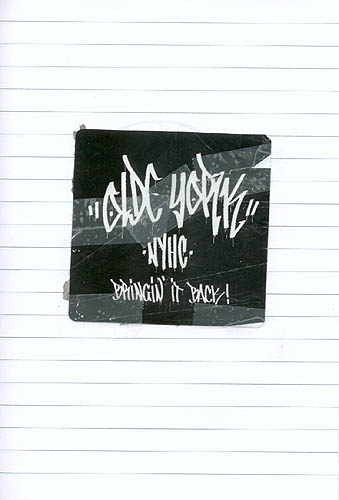 "OLDE YORK"
·NYHC·
BRINGIN' IT BACK!